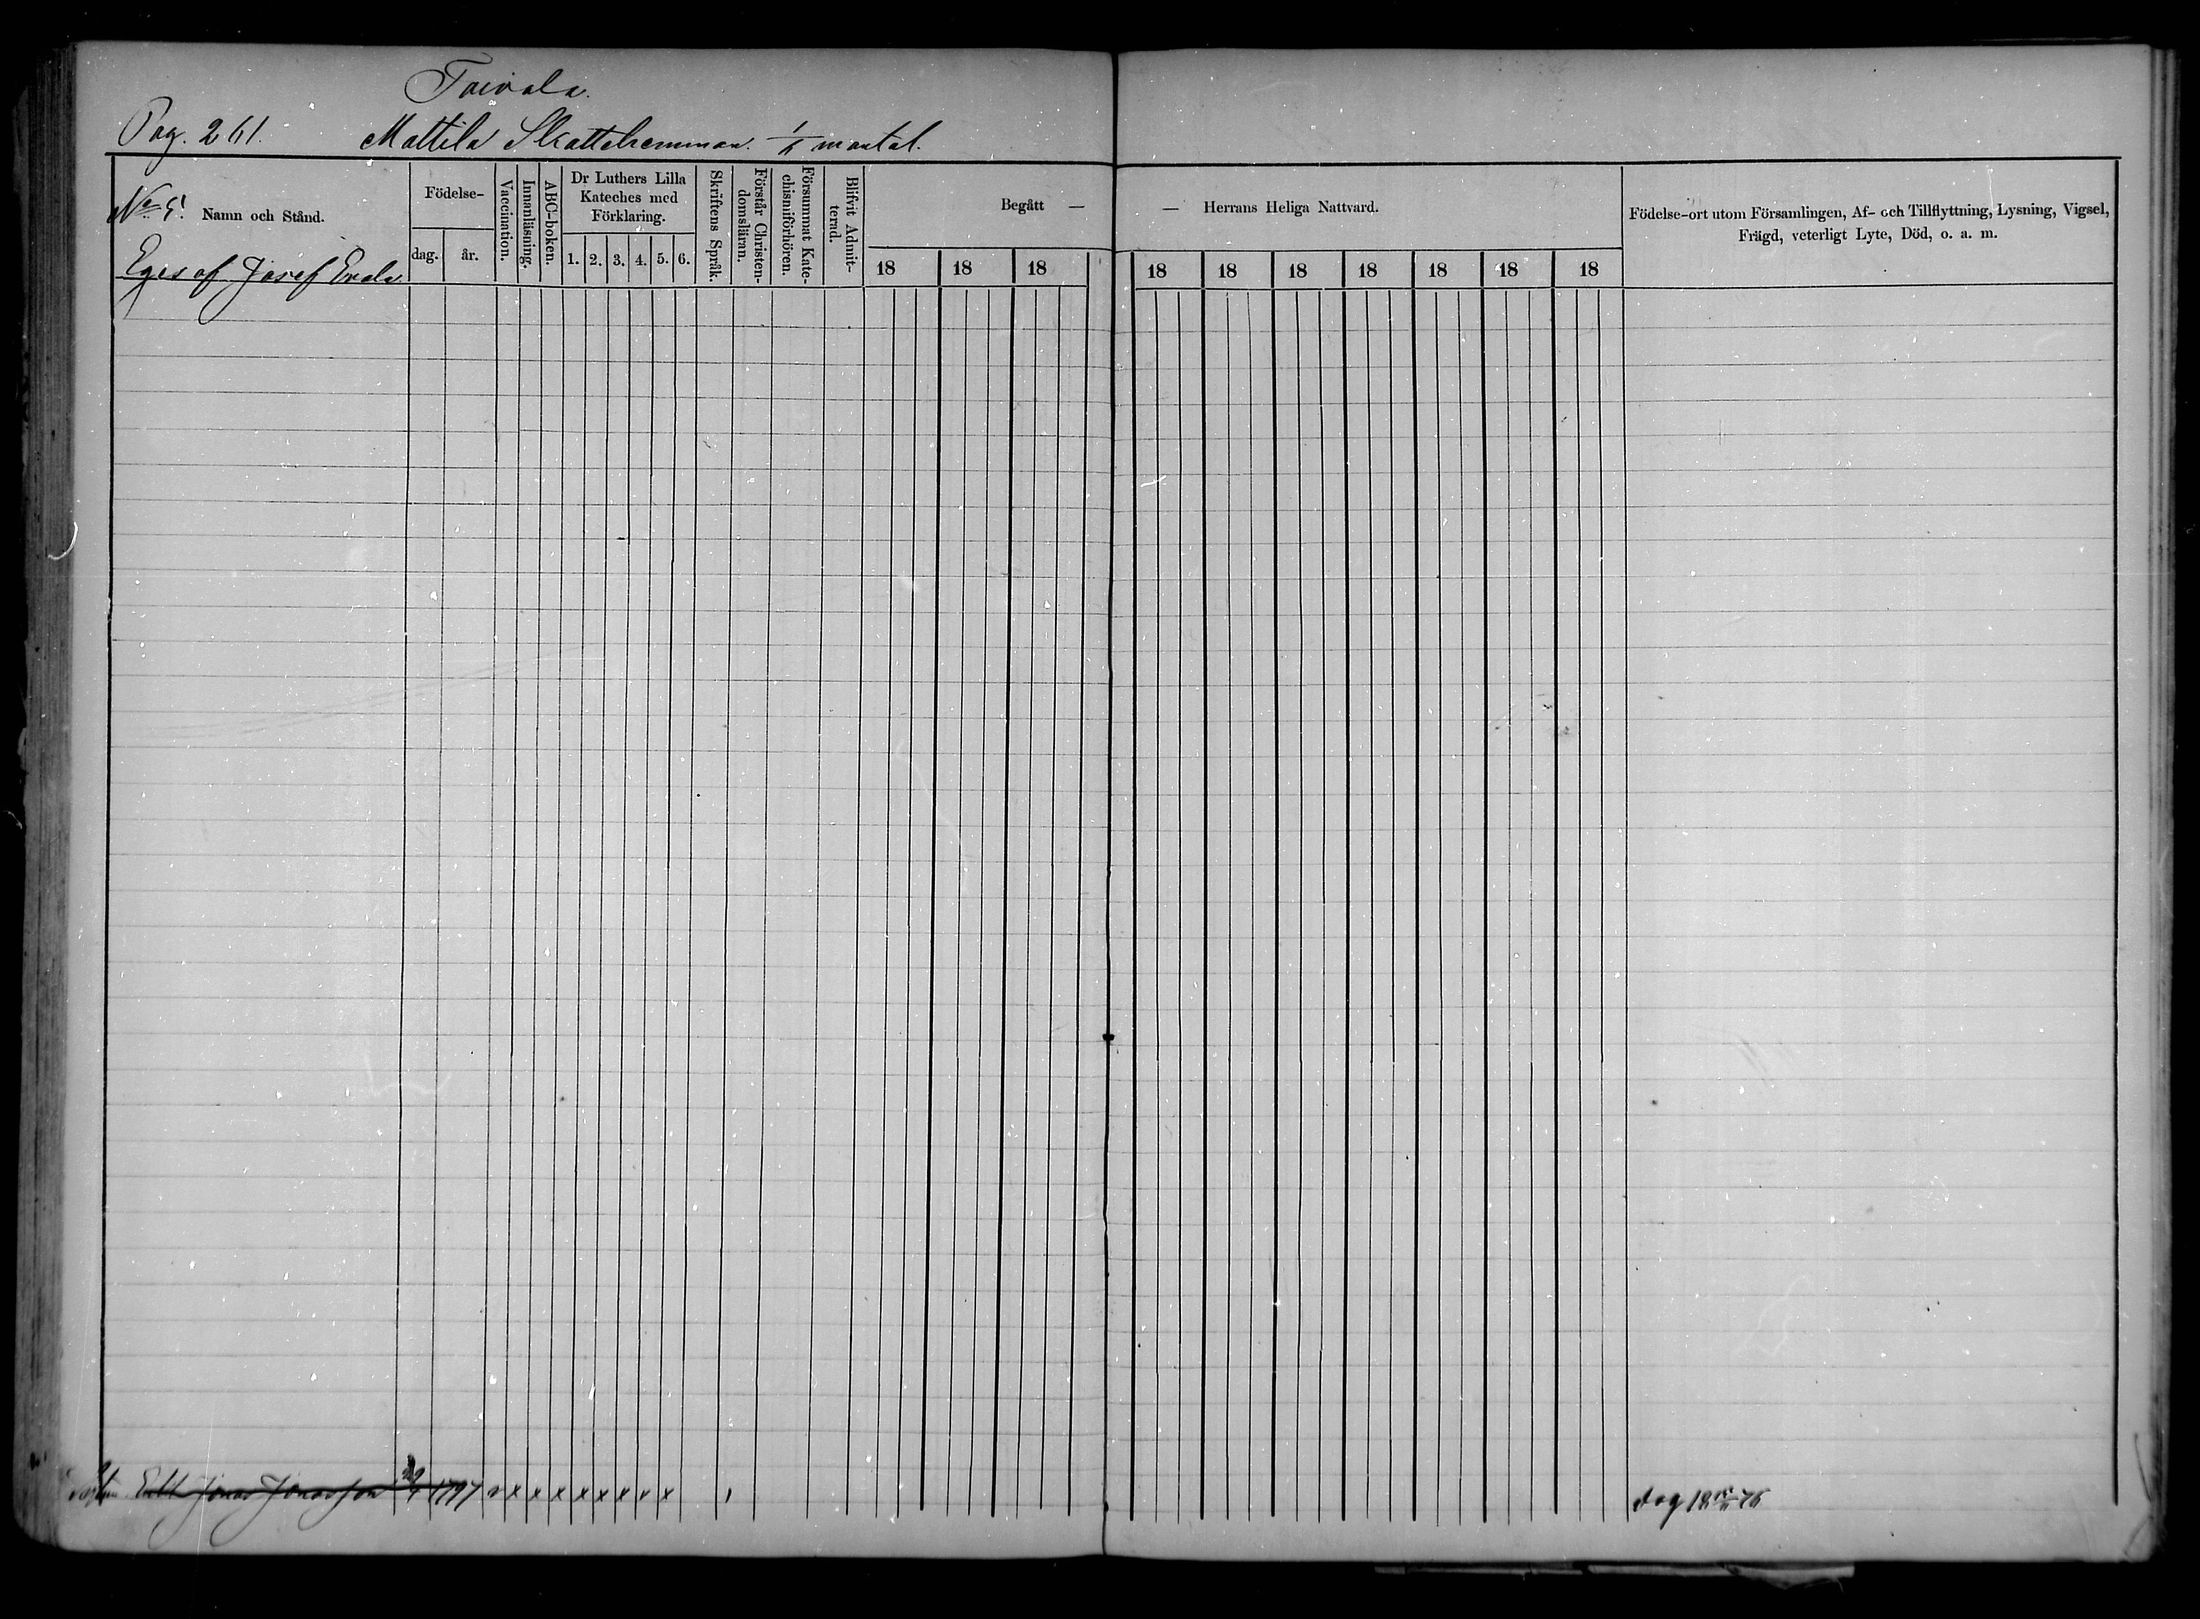 Toivola.
Pag. 261. Mattila Skattehemman. mantal.
No 5. Namn och Stånd.
Eges af Josef Erola
Födelse-
dag.
år.
Vaccination.
Innanläsning.
ABC-boken.
Dr Luthers Lilla
Kateches med
Förklaring.
1. 2. 3. 4. 5. 6.
Skriftens Språk.
Förstår Christen-
domsläran.
Försummat Kate-
chismiförhören.
Blifvit Admit-
terad.
Begått —
18 18 18
— Herrans Heliga Nattvard.
18 18 18 18 18 18 18
Födelse-ort utom Församlingen, Af- och Tillflyttning, Lysning, Vigsel,
Frägd, veterligt Lyte, Död, o. a. m.
Jonas Jonasson 1797 x x x x x x x x
dog 18 76